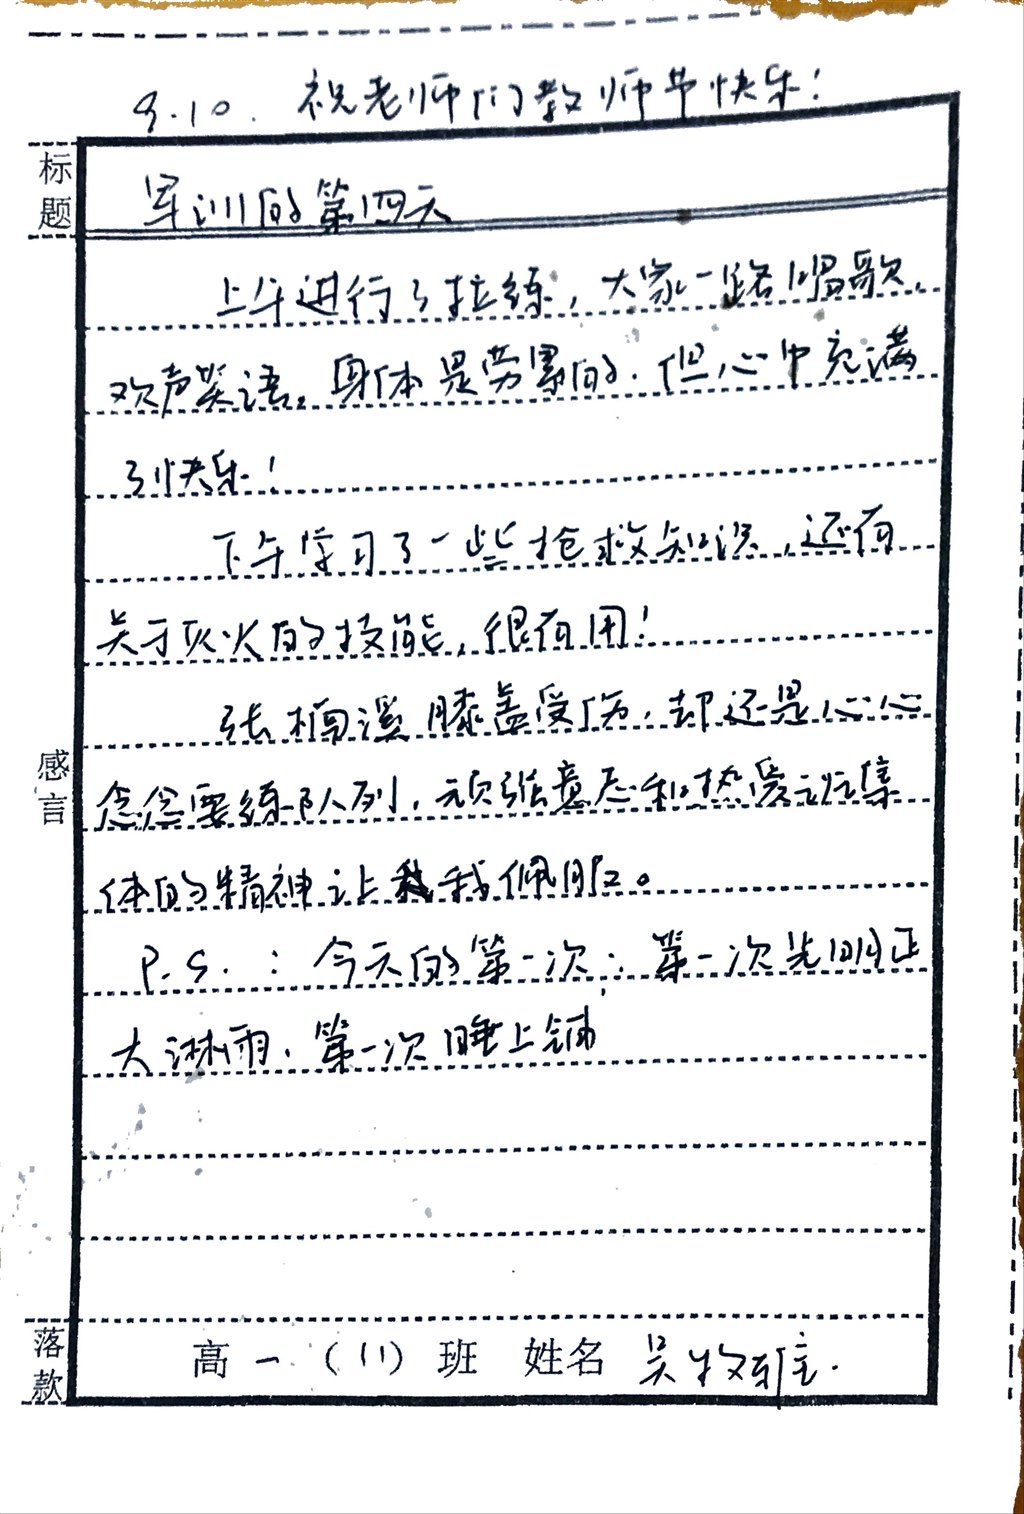 9.10. 祝老师们教师节快乐！
标题
军训的第四天
上午进行了拉练，大家一路唱歌，
欢声笑语。身体是劳累的，但心中充满
了快乐！
下午学习了一些抢救知识，还有
关于灭火的技能，很有用！
张楠溪膝盖受伤，却还是心心
感言
念念要练队列，顽强意志和热爱这集
体的精神让我佩服。
P.S.：今天的第一次：第一次光明正
大淋雨，第一次睡上铺
落款
高一（11）班 姓名 吴牧雅.